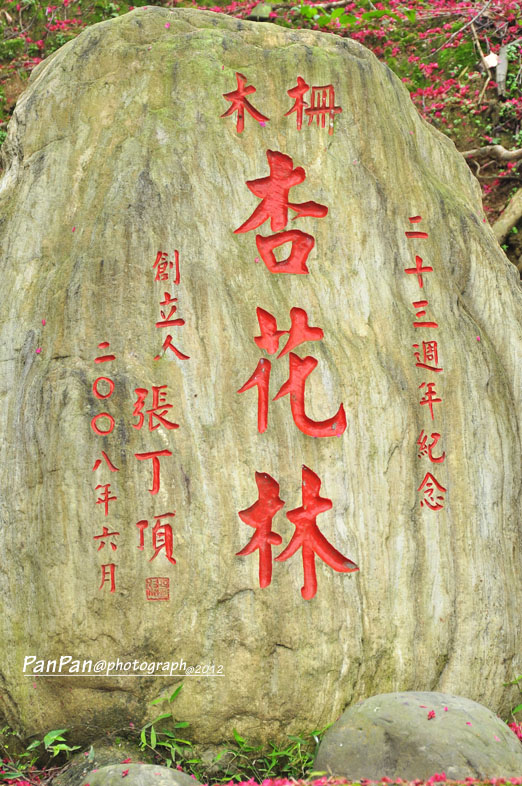 木柵
二十三週年紀念
杏花林
創立人
張丁頂
二〇〇八年六月
PanPan@photograph@2012